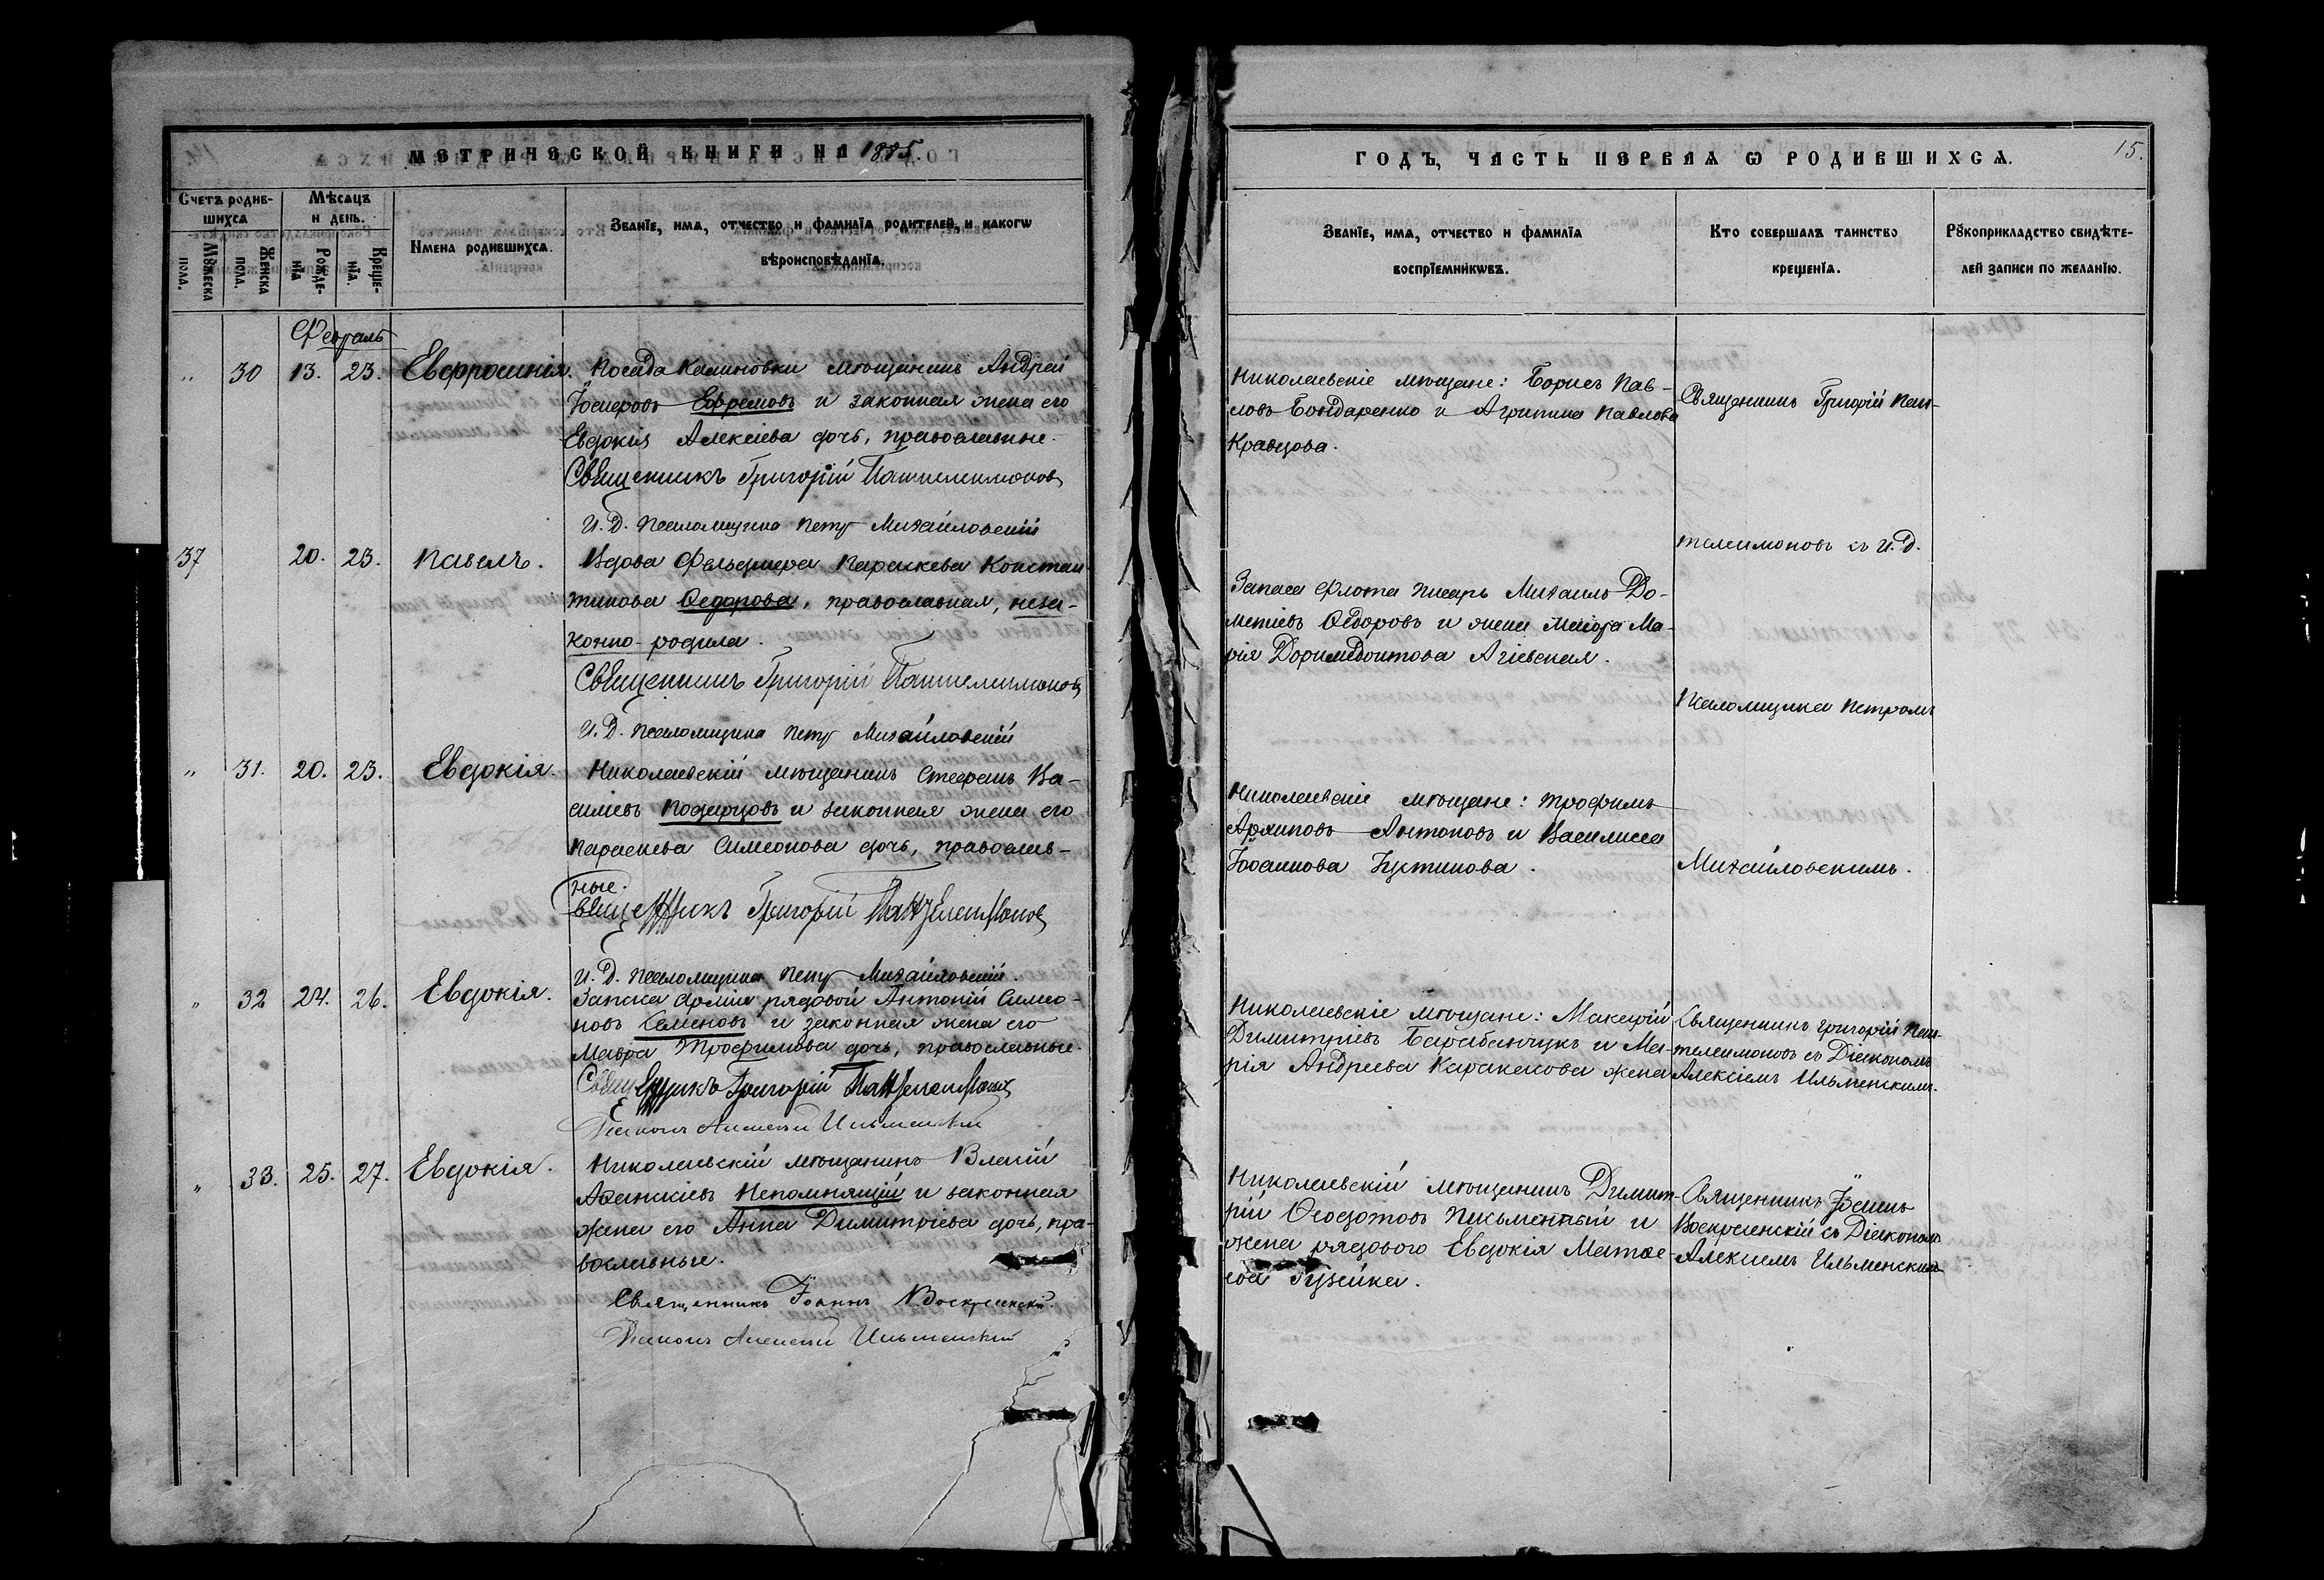 МЕТРИЧЕСКОЙ КНИГИ НА 1885.
Счетъ родив-
шихся
Мѣсяцъ
и день.
Мȣжеска
пола.
Женска
пола.
Рожде-
нїа
Креще-
нїа.
Имена родившихсѧ.
Званїе, имѧ, отчество и фамилїа родителей, и какогѡ
вѣроисповѣданїа.
Февраль
" 30 13. 23. Евфросинія. Посада Калиновки мѣщанинъ Андрей
Іосифовъ Ефремовъ и законная жена его
Евдокія Алексіева дочь, православные.
Священникъ Григорій Пантелеимоновъ
И. Д. Псаломщика Петръ Михайловскій
37 20. 23. Павелъ. Вдова Фельдшера Параскева Констан-
тинова Ѳедорова, православная, неза-
конно-родила.
Священникъ Григорій Пантелеимоновъ
И. Д. Псаломщика Петръ Михайловскій
" 31. 20. 23. Евдокія. Николаевскій мѣщанинъ Стефанъ Ва-
силіевъ и законная жена его
Параскева Симеонова дочь, православ-
ные.
Священникъ Григорій Пантелеимоновъ
И. Д. Псаломщика Петръ Михайловскій.
" 32 24. 26. Евдокія. Запаса арміи рядовой Антоній Симео-
новъ Семеновъ и законная жена его
Мавра Трофимова дочь, православные.
Священникъ Григорій Пантелеимоновъ
Діаконъ Алексѣй Ильменскій
" 33. 25. 27. Евдокія. Николаевскій мѣщанинъ
Непомнящій и законная
жена его Анна Димитріева дочь, пра-
вославные.
Священникъ Іоаннъ Воскресенскій.
Діаконъ Алексѣй Ильменскій
ГОДЪ, ЧАСТЬ ПЕРВАѦ Ѡ РОДИВШИХСѦ.
15.
Званїе, имѧ, отчество и фамилїа
воспрїемникѡвъ.
Кто совершалъ таинство
крещенїа.
Рȣкоприкладство свидѣте-
лей записи по желанїю.
Николаевскіе мѣщане: Борисъ Пав-
ловъ Бондаренко и Агрипина Павлова
Кравцова.
Священникъ Григорій Пан-
телеимоновъ съ И. Д.
Псаломщика Петромъ
Михайловскимъ.
Запаса флота писарь Михаилъ До-
метіевъ Ѳедоровъ и жена Маіора Ма-
рія Доримедонтова Агіевская.
Николаевскіе мѣщане: Трофимъ
Архиповъ Антоновъ и Василисса
Іоаннова Кустинова.
Николаевскіе мѣщане: Макарій
Димитріевъ Барабанчукъ и Ма-
рія Андреева жена
Священникъ Григорій Пан-
телеимоновъ съ Діакономъ
Алексіемъ Ильменскимъ.
Николаевскій мѣщанинъ Димит-
рій Ѳеодотовъ Письменный и
жена рядового Евдокія Матѳе-
ева Гузейка.
Священникъ Іоаннъ
Воскресенскій съ Діакономъ
Алексіемъ Ильменскимъ